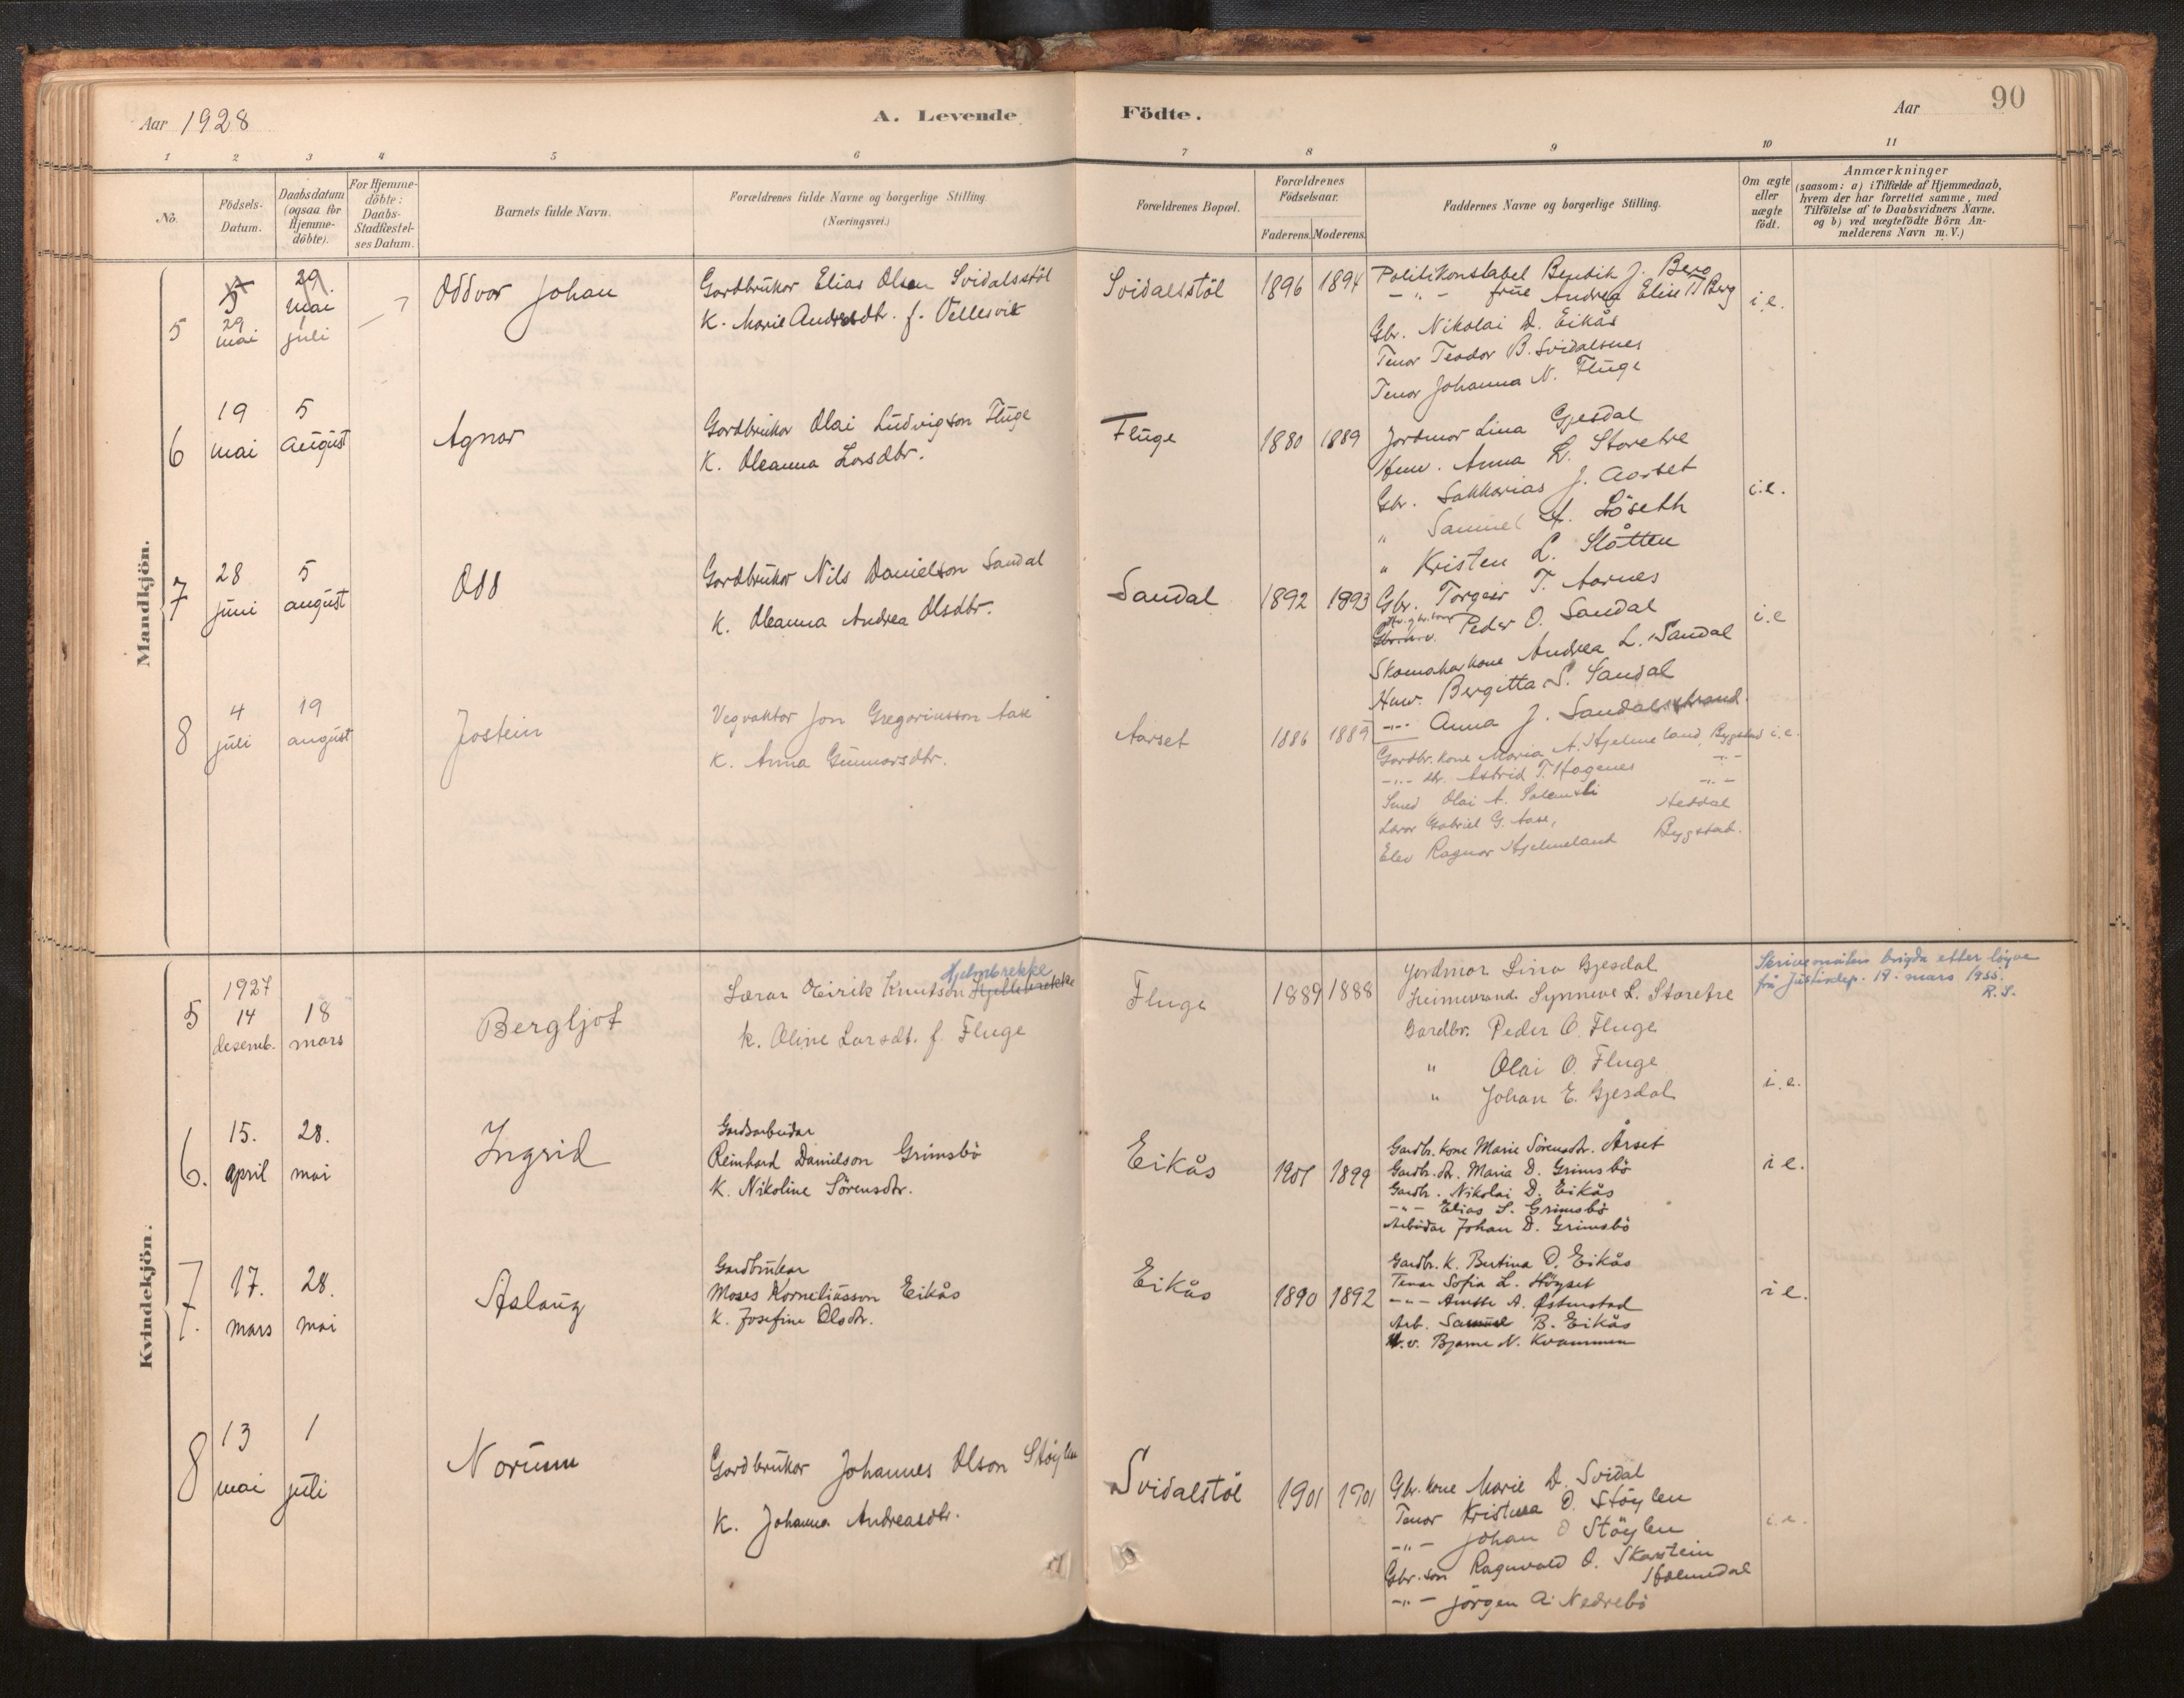 Aar 1928
A. Levende
Födte.
Aar
90
1 2 3 4 5 6 7 8 9 10 11
No.
Födsels-
Datum.
Daabsdatum
(ogsaa for
Hjemme-
döbte).
For Hjemme-
döbte:
Daabs-
Stadfæstel-
ses Datum.
Barnets fulde Navn.
Forældrenes fulde Navne og borgerlige Stilling.
(Næringsvei.)
Forældrenes Bopæl.
Forældrenes
Födselsaar.
Faderens. Moderens.
Faddernes Navne og borgerlige Stilling.
Om ægte
eller
uægte
födt.
Anmærkninger
(saasom: a) i Tilfælde af Hjemmedaab,
hvem der har forrettet samme, med
Tilföielse af to Daabsvidners Navne.
og b) ved uægtefödte Börn An-
melderens Navn m.V.)
Mandkjön.
5
29
mai
29.
mai
1
juli
Oddvar Johan
Gardbrukar Elias Olsen Svidalsstöl
K. Marie Andreasdtr. f. Vellesvik
Svidalsstöl
1896 1894
Politikonstabel Bendik J. Berg
-"- frue Andrea Elise Berg
Gbr. Nikolai D. Eikås
Tenar Teodor B. Svidalsnes
Tenar Johanna N. Fluge
i.e.
6
19
mai
5
august
Agnar
Gardbrukar Olai Ludvigson Fluge
K. Oleanna Larsdtr.
Fluge
1880 1889
Jordmor Lina Gjesdal
Huw. Anna L. Storetre
Gbr. Sakkarias J. Aarset
" Samuel A. Löseth
" Kristen L. Slåtten
i.e.
7
28
juni
5
august
Odd
Gardbrukar Nils Danielson Sandal
K. Oleanna Andrea Olsdtr.
Sandal
1892 1893
Gbr. Torgeir T. Aarnes
Peder O. Sandal
Skomakarkone Andrea L. Sandal
Huw. Bergitta S. Sandal
-"- Anna J. Sandalsstrand.
i.e
8
4
juli
19
august
Jostein
Vegvaktar Jon Gregoriusson Aase
K. Anna Gunnarsdtr.
Aarset
1886 1889
Gardbr. kone Maria A. Hjelmeland, Bygstad i.e.
-"- dtr. Astrid T. Hagenes -"-
Smed Olai A. -"-
Lærar Gabriel G. Aase, Heddal
Elev Ragnar Hjelmeland Bygstad.
Kvindekjön.
5
1927
14
desemb.
18
mars
Bergljot
Hjelmbrekke
Lærar Eirik Knutson Hjellebrekke
k. Oline Larsdt. f. Fluge
Fluge
1889 1888
Jordmor Lina Gjesdal
Heimeverande Synneve L. Storetre
Gardbr. Peder O. Fluge
" Olai O. Fluge
" Johan E. Gjesdal
i.e.
Skrivemåten brigda etter löyve
frå Justisdep. 17. mars 1955.
R.S.
6.
15.
april
28.
mai
Ingrid
Gardsarbeidar
Reinhard Danielson Grimsbö
K. Nikoline Sörensdtr.
Eikås
1901 1899
Gardbr. kone Marie Sörensdtr. Årset
Gardbr. dtr. Maria D. Grimsbö
Gardbr. Nikolai D. Eikås
-"- Elias S. Grimsbö
Arbeidar Johan D. Grimsbö
i e.
7.
17.
mars
28.
mai
Aslaug
Gardbrukar
Moses Korneliusson Eikås
K. Josefine Olsdtr.
Eikås
1890 1892
Gardbr. K. Bertina O. Eikås
Tenar Sofia L. Högset
-"- Anette A. Østenstad
Arb. Samuel B. Eikås
H.v. Bjarne N. Kvammen
i e.
8
13
mai
1
juli
Norunn
Gardbrukar Johannes Olson Stöylen
K. Johanna Andreasdtr.
Svidalstöl
1901 1901
Gbr. kone Marie D. Svidal
Tenar Kristina O. Stöylen
-"- Johan O Stöylen
Gbr. son Ragnvald O. Skarstein
Holmedal
-"- Jörgen A. Nedrebö
i.e.